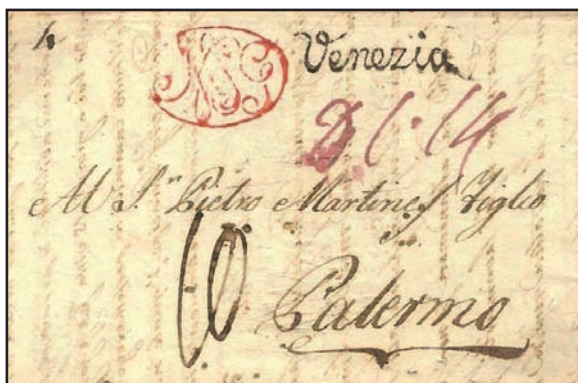 Venezia
Al S.r Pietro Martines Figlio
10
Palermo